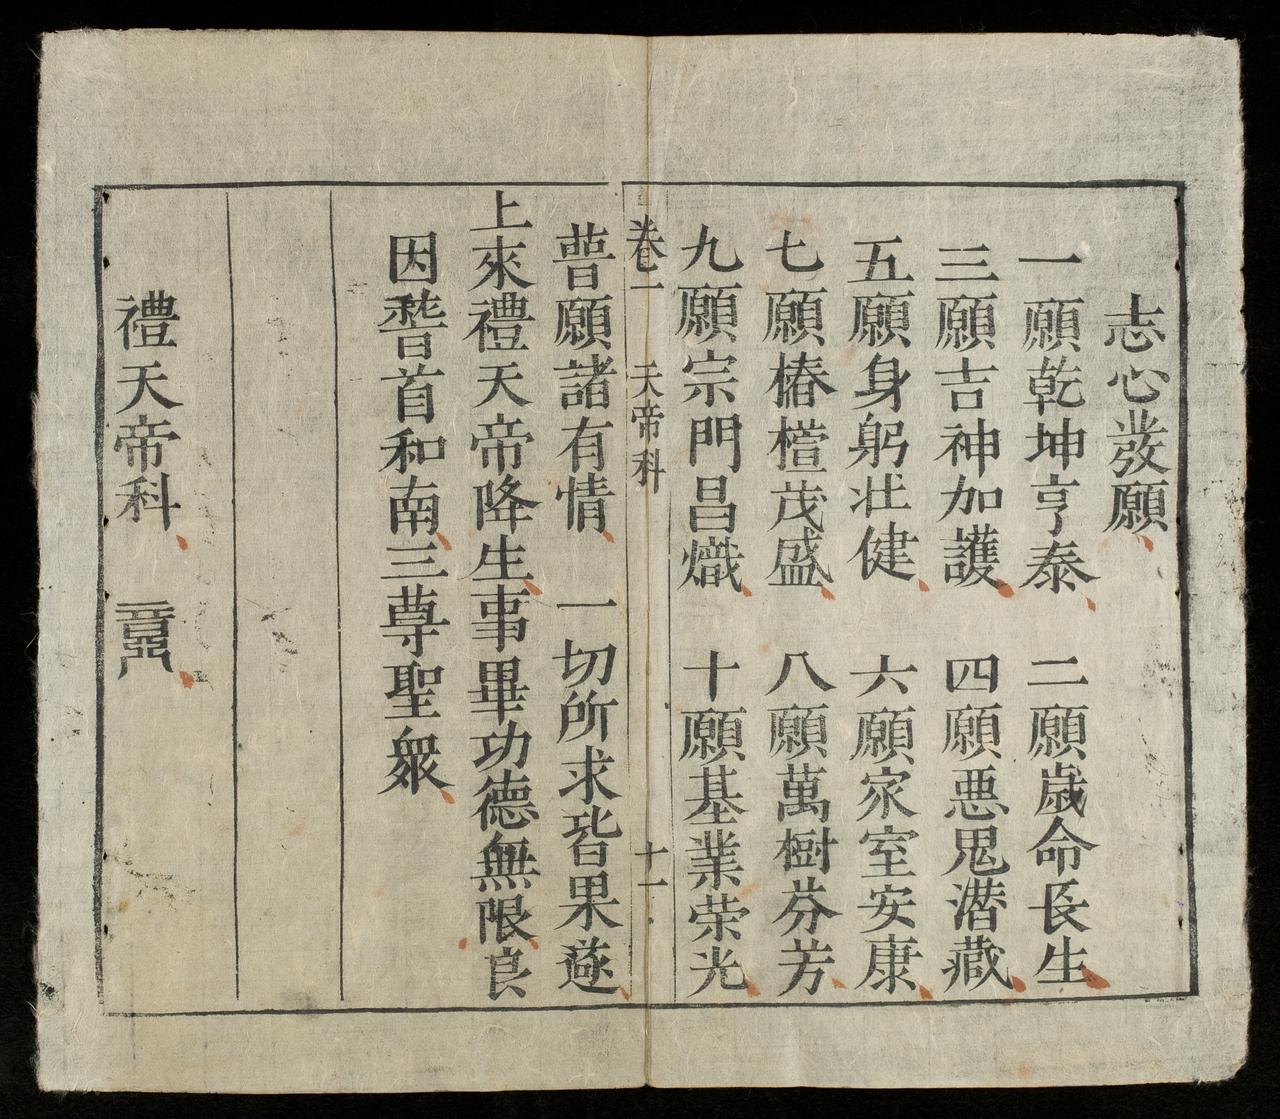 志心發願
一願乾坤亨泰 二願歲命長生
三願吉神加護 四願惡鬼潛藏
五願身躬壯健 六願家室安康
七願椿樁茂盛 八願萬樹芬芳
九願宗門昌熾 十願基業荣光
卷一 天帝科 十一
普願諸有情 一切所求皆果遂
上來禮天帝降生事畢功德無限良
因稽首和南三尊聖衆
禮天帝科